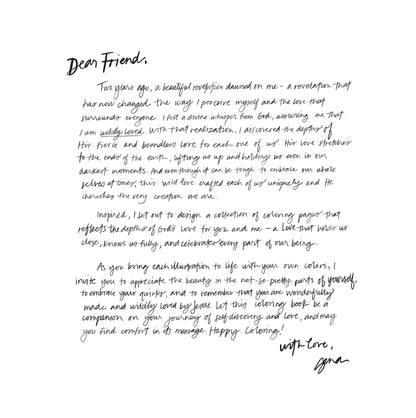 Dear Friend,
Two years ago, a beautiful revelation dawned on me - a revelation that
has now changed the way I perceive myself and the love that
surrounds everyone. I felt a divine whisper from God, assuring me that
I am wildly loved. With that realization, I discovered the depths of
His fierce and boundless love for each one of us. His love stretches
to the ends of the earth, lifting us up and holding us even in our
darkest moments. And even though it can be tough to embrace our whole
selves at times, this wild love crafted each of us uniquely and He
cherishes the very creation we are.
Inspired, I set out to design a collection of coloring pages that
reflects the depths of God's love for you and me - a love that holds us
close, knows us fully, and celebrates every part of our being.
As you bring each illustration to life with your own colors, I
invite you to appreciate the beauty in the not-so-pretty parts of yourself,
to embrace your quirks, and to remember that you are wonderfully
made and wildly loved by Jesus. Let this coloring book be a
companion on your journey of self-discovery and love, and may
you find comfort in its message. Happy Coloring!
With Love,